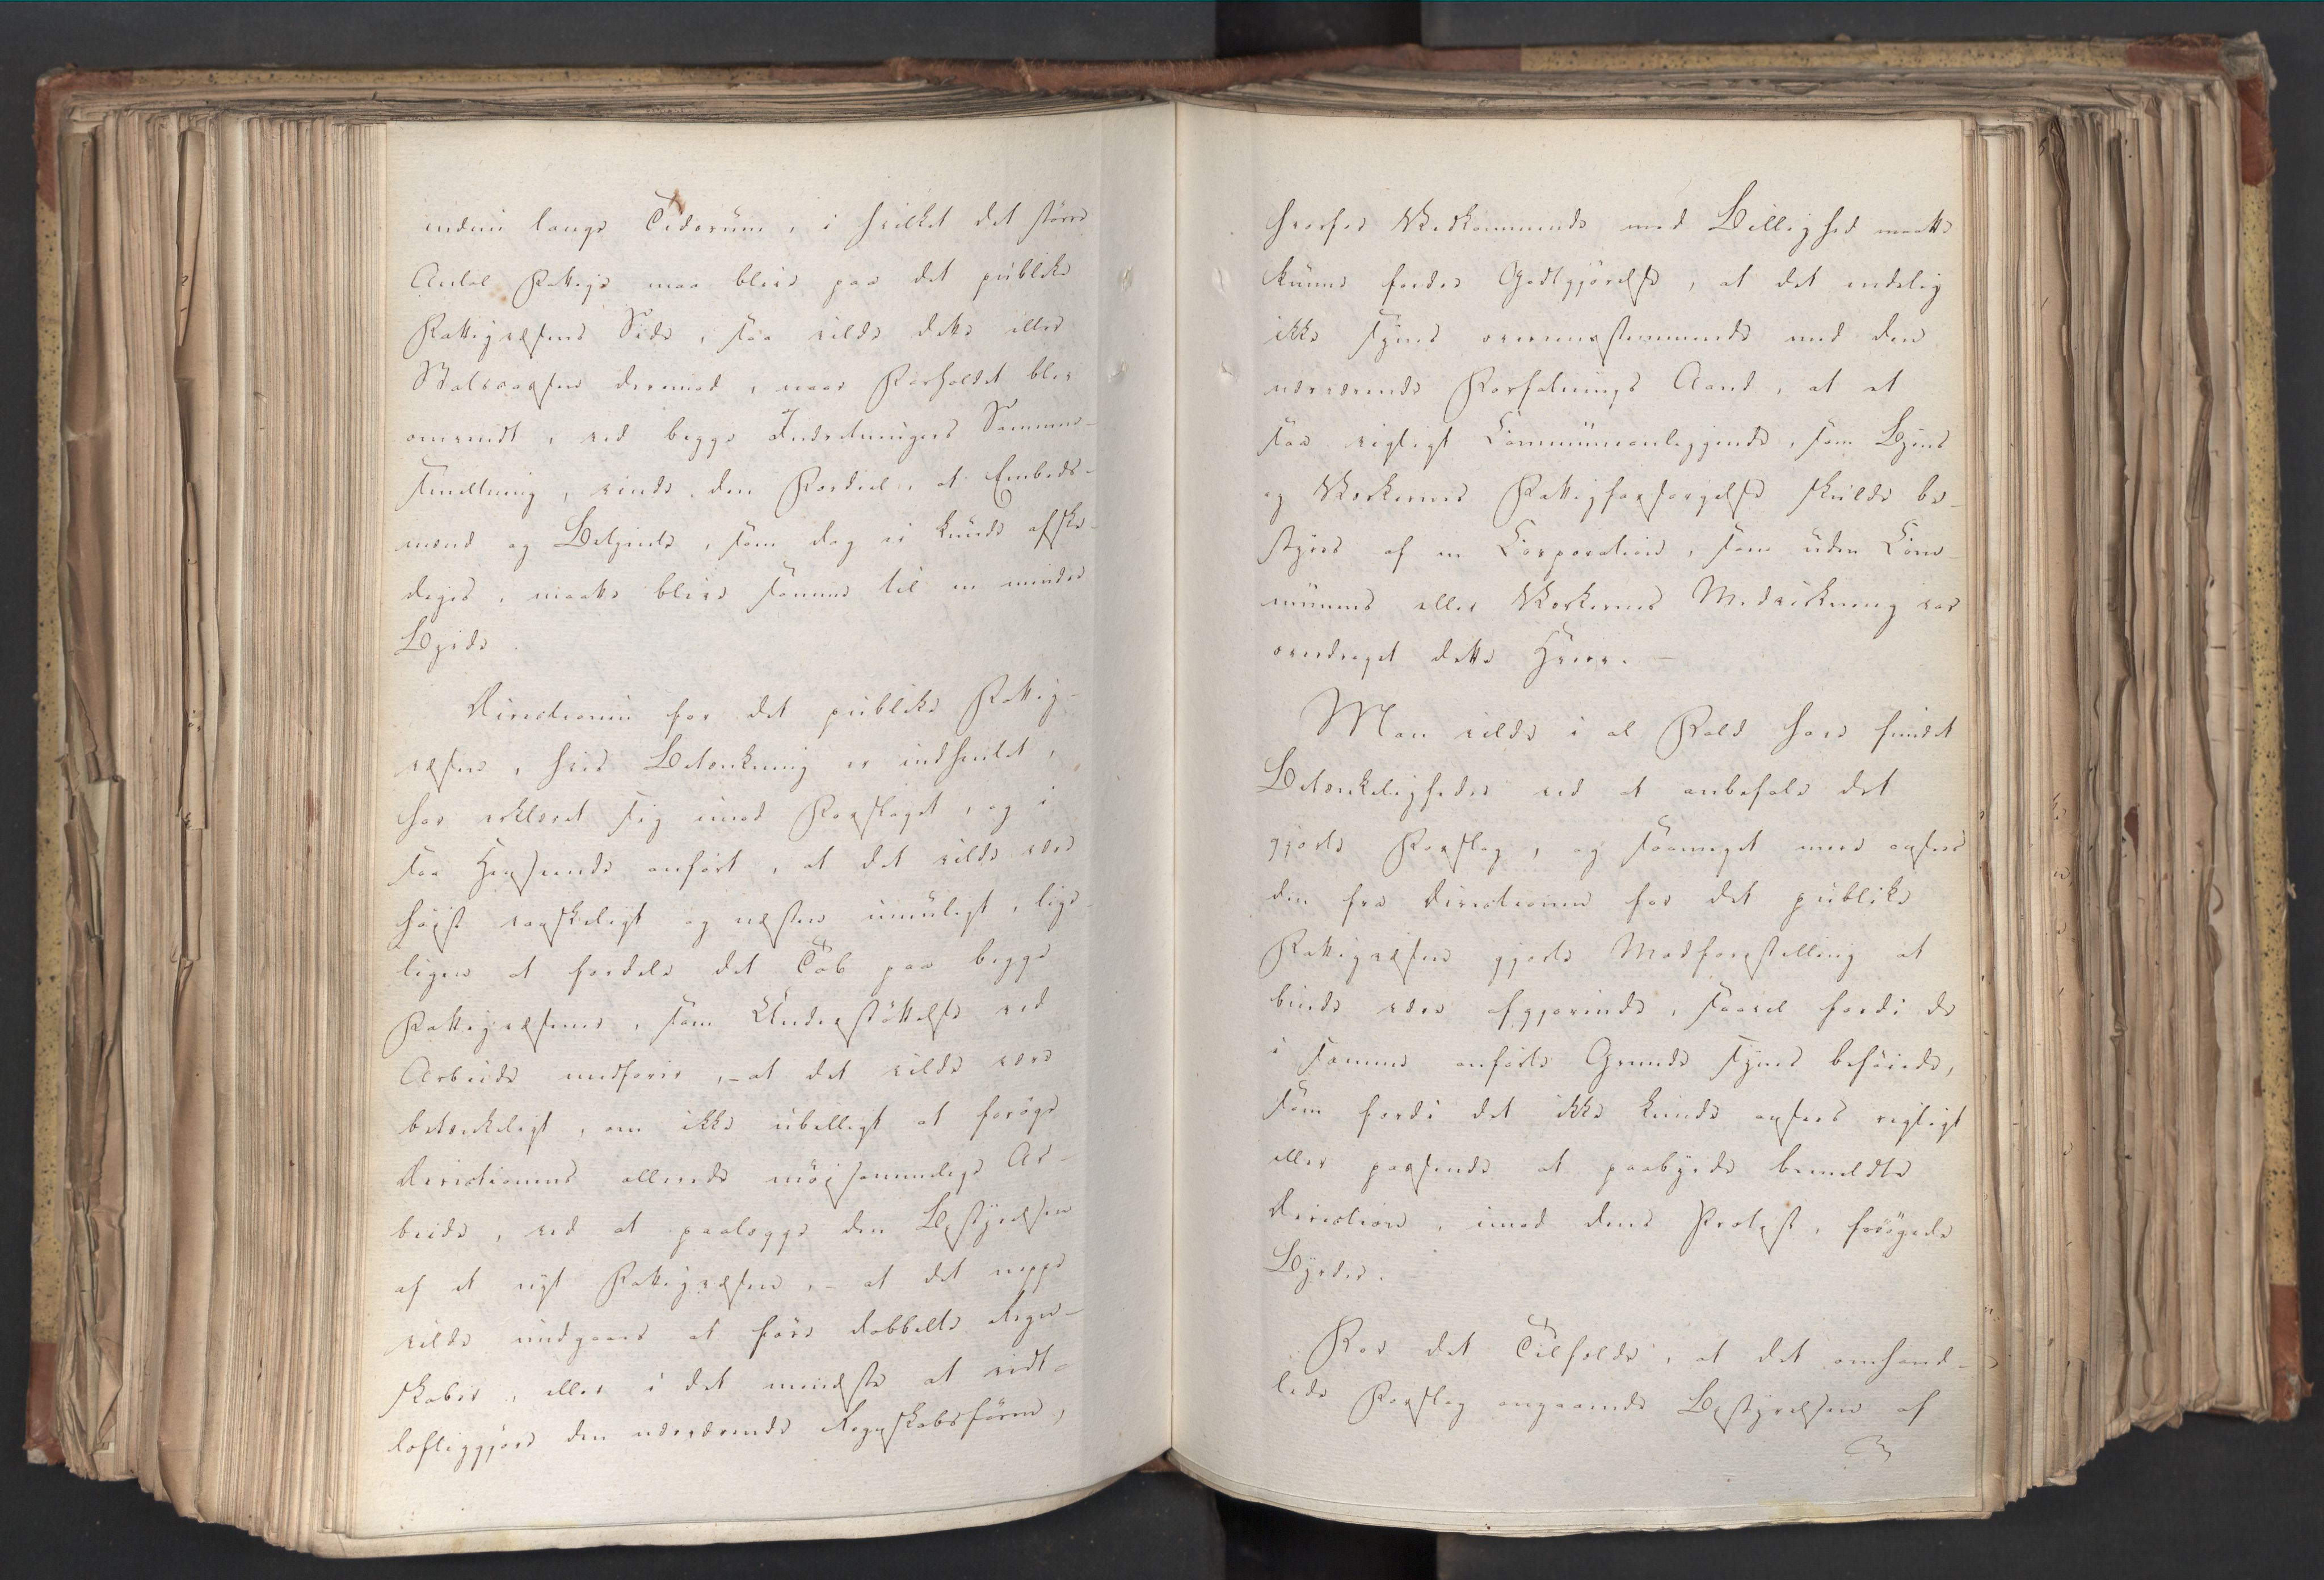 inden lange Tidsrum, i hvilket det større
Antal Fattige maa blive paa det publike
Fattigvæsens Side, saa vilde dette eller
Statscassen derimod, naar Forholdet blev
omvendt, ved begge Indretningers Sammen-
smeltning, vinde den Fordeel, at Embeds-
mænd og Betjente, som dog ei kunde afske-
diges, maatte blive samme til en mindre
Byrde.
Directionen for det publike Fattig-
væsen, hvis Betænkning er indhentet,
har erklæret sig imod Forslaget, og i
saa Henseende anført, at det vilde være
høist vanskeligt og næsten umuligt, lige-
ligen at fordele det Tab paa begge
Fattigvæsener, som Understøttelse ved
Arbeide medfører, - at det vilde være
betænkeligt, om ikke ubilligt at forøge
Directionens allerede møisommelige Ar-
beide, ved at paalægge den Bestyrelsen
af et nyt Fattigvæsen, - at det neppe
vilde undgaaes at føre dobbelte Regn-
skaber, eller i det mindste at vidt-
løftiggjøre den nærværende Regnskabsform,
hvorfor Vedkommende med Billighed maatte
kunne fordre Godtgjørelse, at det endelig
ikke synes overeensstemmende med den
nærværende Forfatnings Aand, at et
saa vigtigt Communeanliggende, som Byens
og Værkernes Fattigforsørgelse skulde be-
styres af en Corporation, som uden Com-
munens eller Værkernes Medvirkning var
overdraget dette Hverv. -
Man vilde i al Fald have fundet
Betænkeligheder ved at anbefale det
gjorte Forslag, og saameget meer ansees
den fra Directionen for det publike
Fattigvæsen gjorte Modforestilling at
burde være afgjørende, saavel fordi de
i samme anførte Grunde synes beføiede,
som fordi det ikke kunde ansees rigtigt
eller passende at paabyrde bemeldte
Direction, imod dens Protest, forøgede
Byrder.
For det Tilfælde, at det omhand-
lede Forslag angaaende Bestyrelsen af